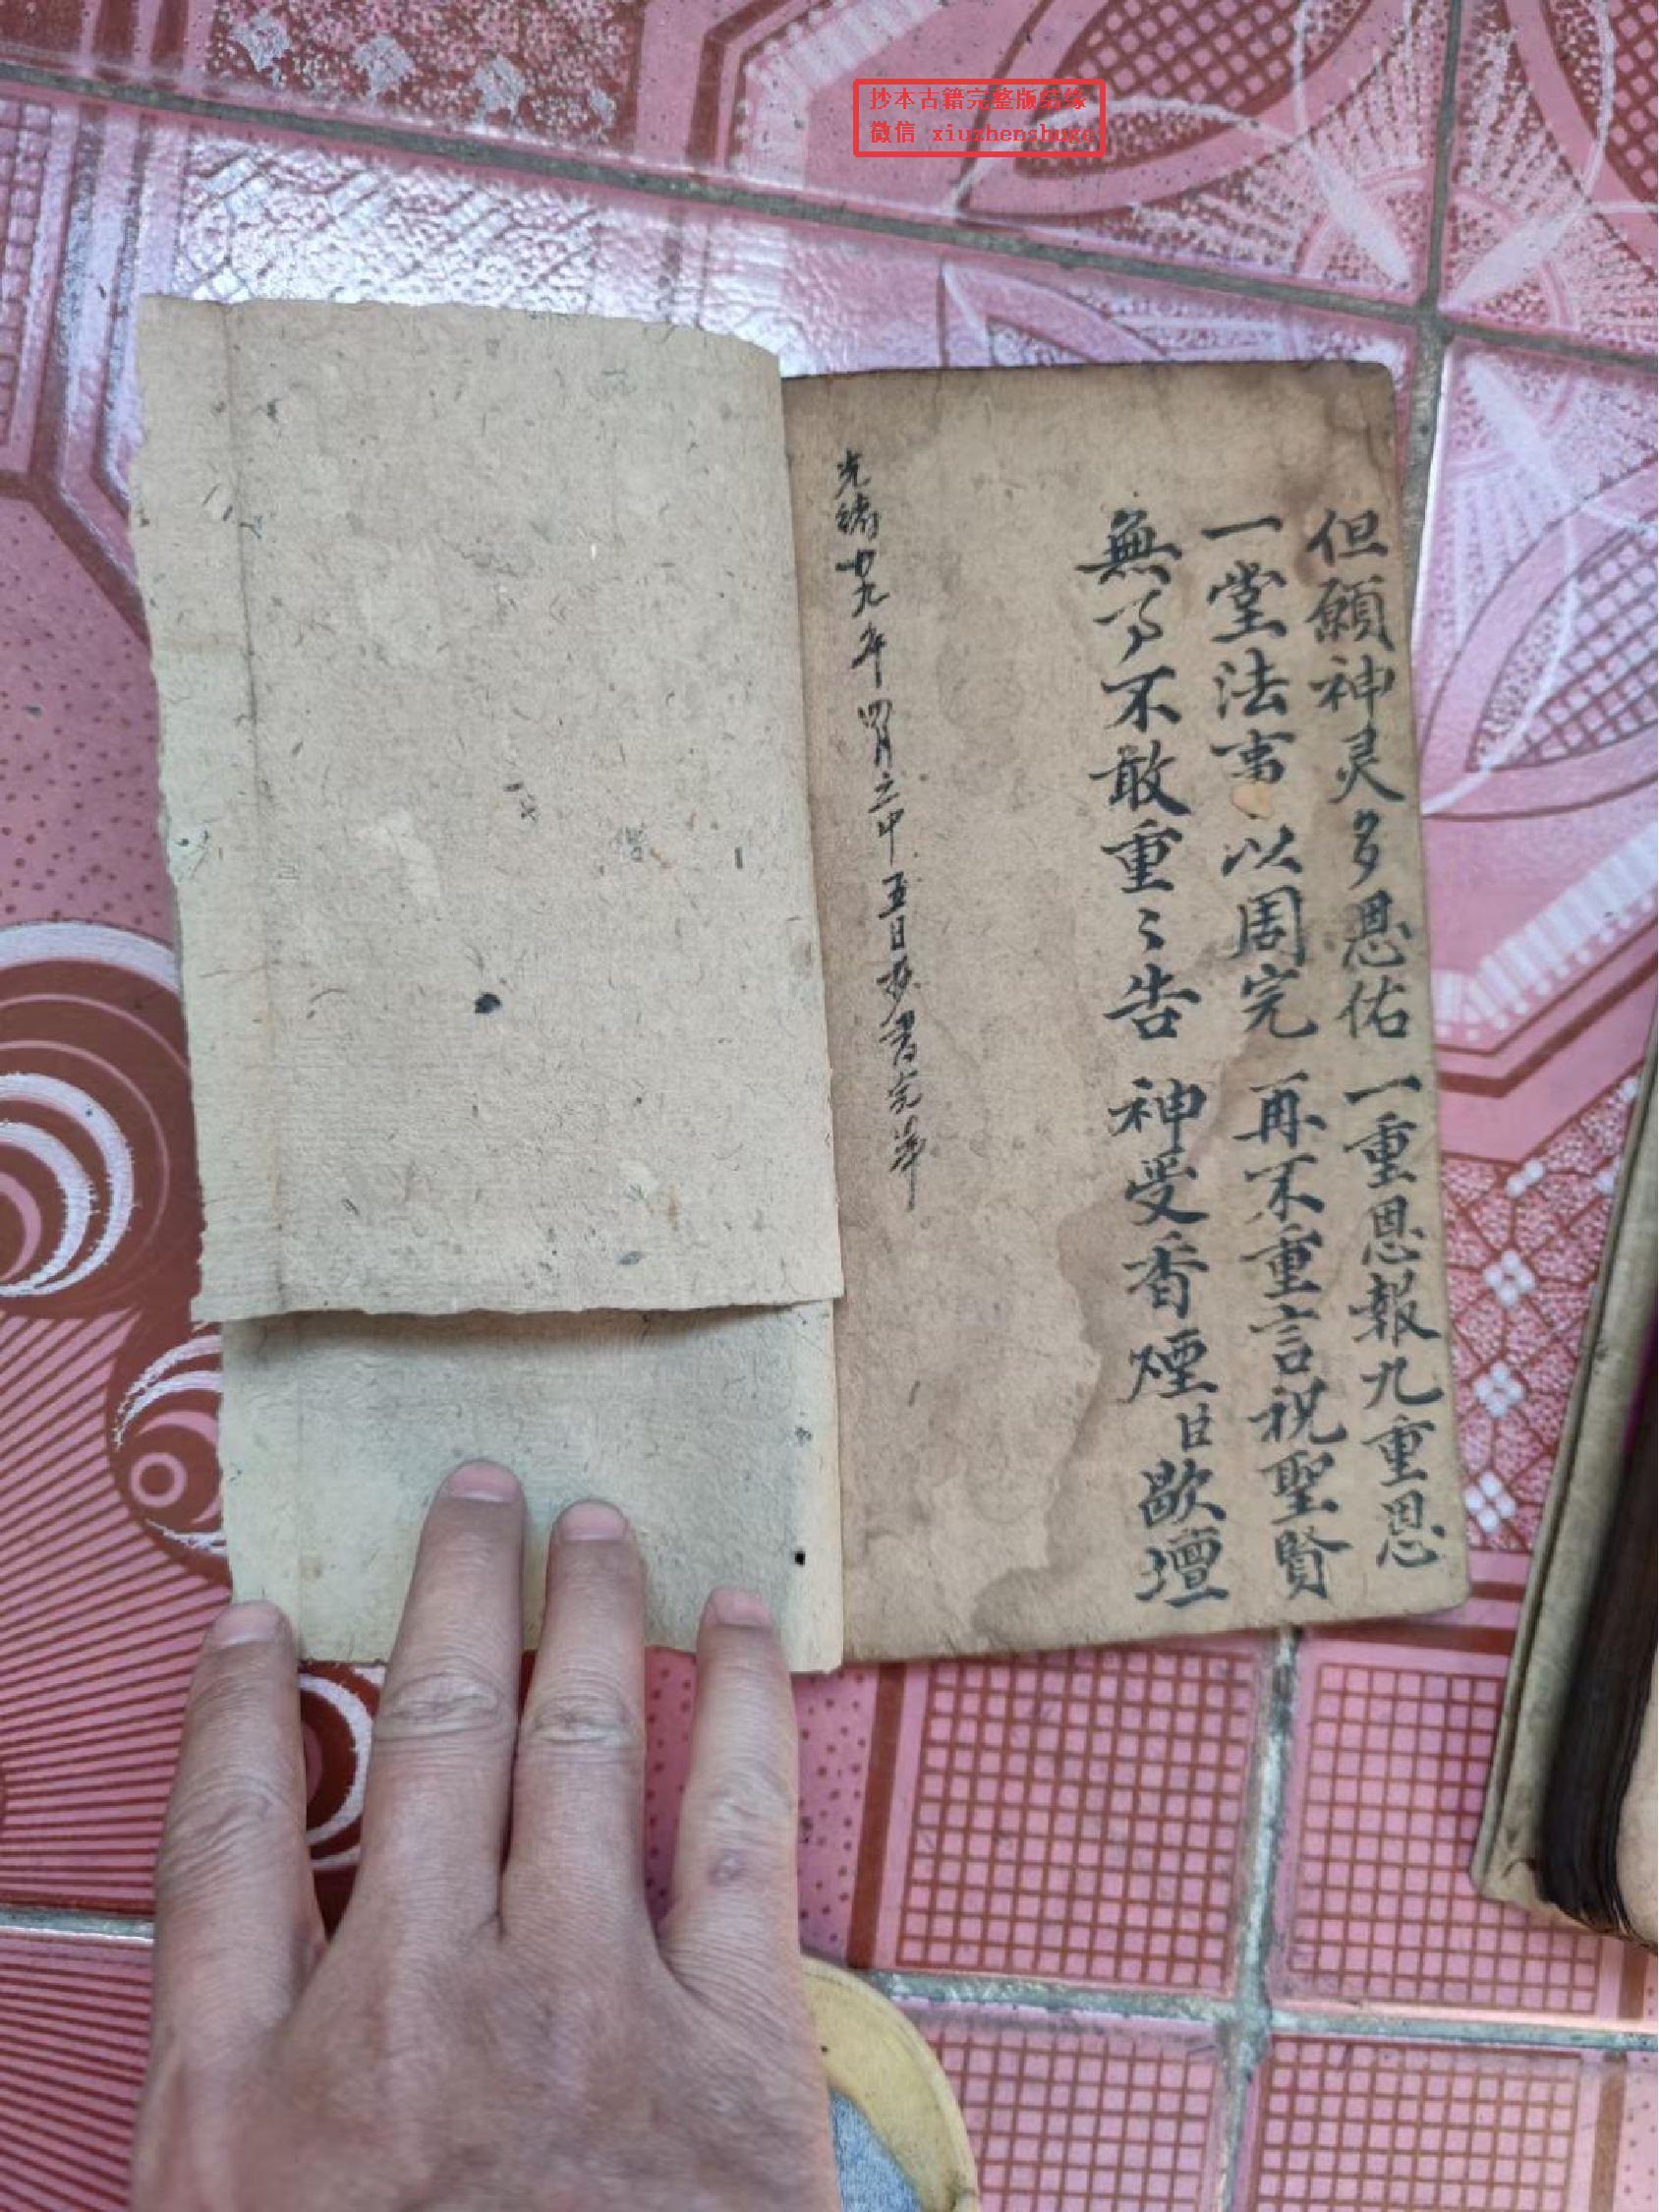 抄本古籍完整版结缘
微信 xiuzhenshuge
但願神灵多恩佑 一重恩報九重恩
一堂法事以周完 再不重言祝聖賢
無事不敢重〻告 神受香煙日歇壇
光緒廿九年四月立中五日抄書完筆